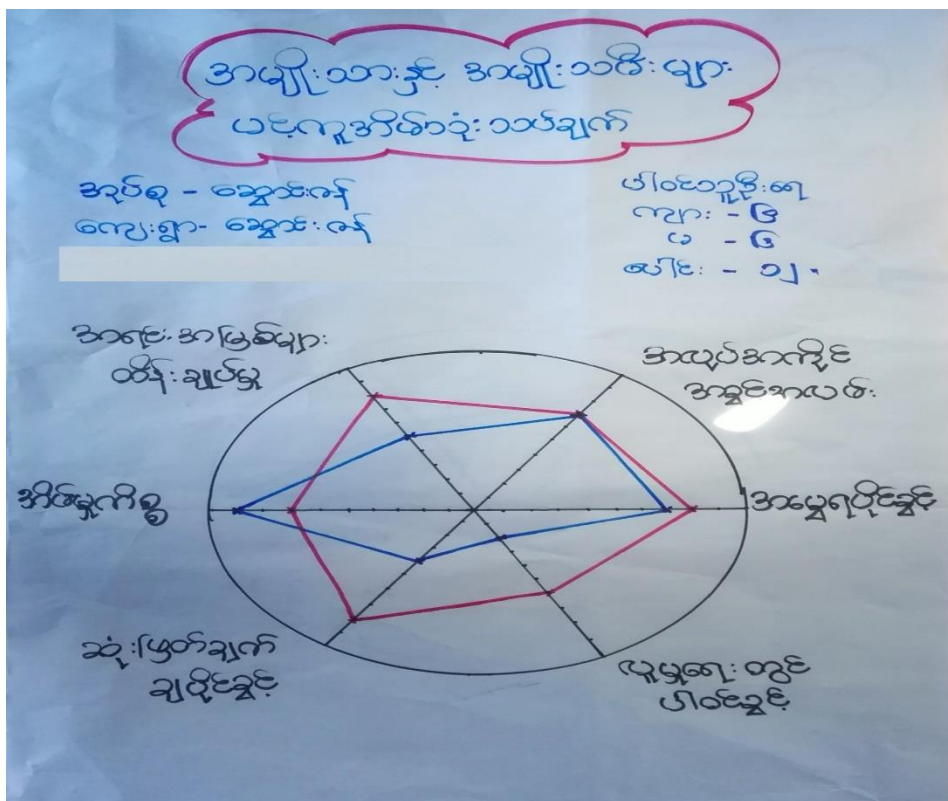 အမျိုးသားနှင့် အမျိုးသမီးများ
ပင့်ကူအိမ်သုံးသပ်ချက်
အုပ်စု - ဆွောင်းဇန်
ကျေးရွာ- ဆွောင်းဇန်
ပါဝင်သူဦးရေ
ကျား - ၆
မ - ၆
ပေါင်း - ၁၂
အရင်းအမြစ်များ
ထိန်းချုပ်မှု
အလုပ်အကိုင်
အခွင့်အလမ်း
အိမ်မှုကိစ္စ
အမွေရပိုင်ခွင့်
ဆုံးဖြတ်ချက်
ချပိုင်ခွင့်
လူမှုရေးတွင်
ပါဝင်ခွင့်